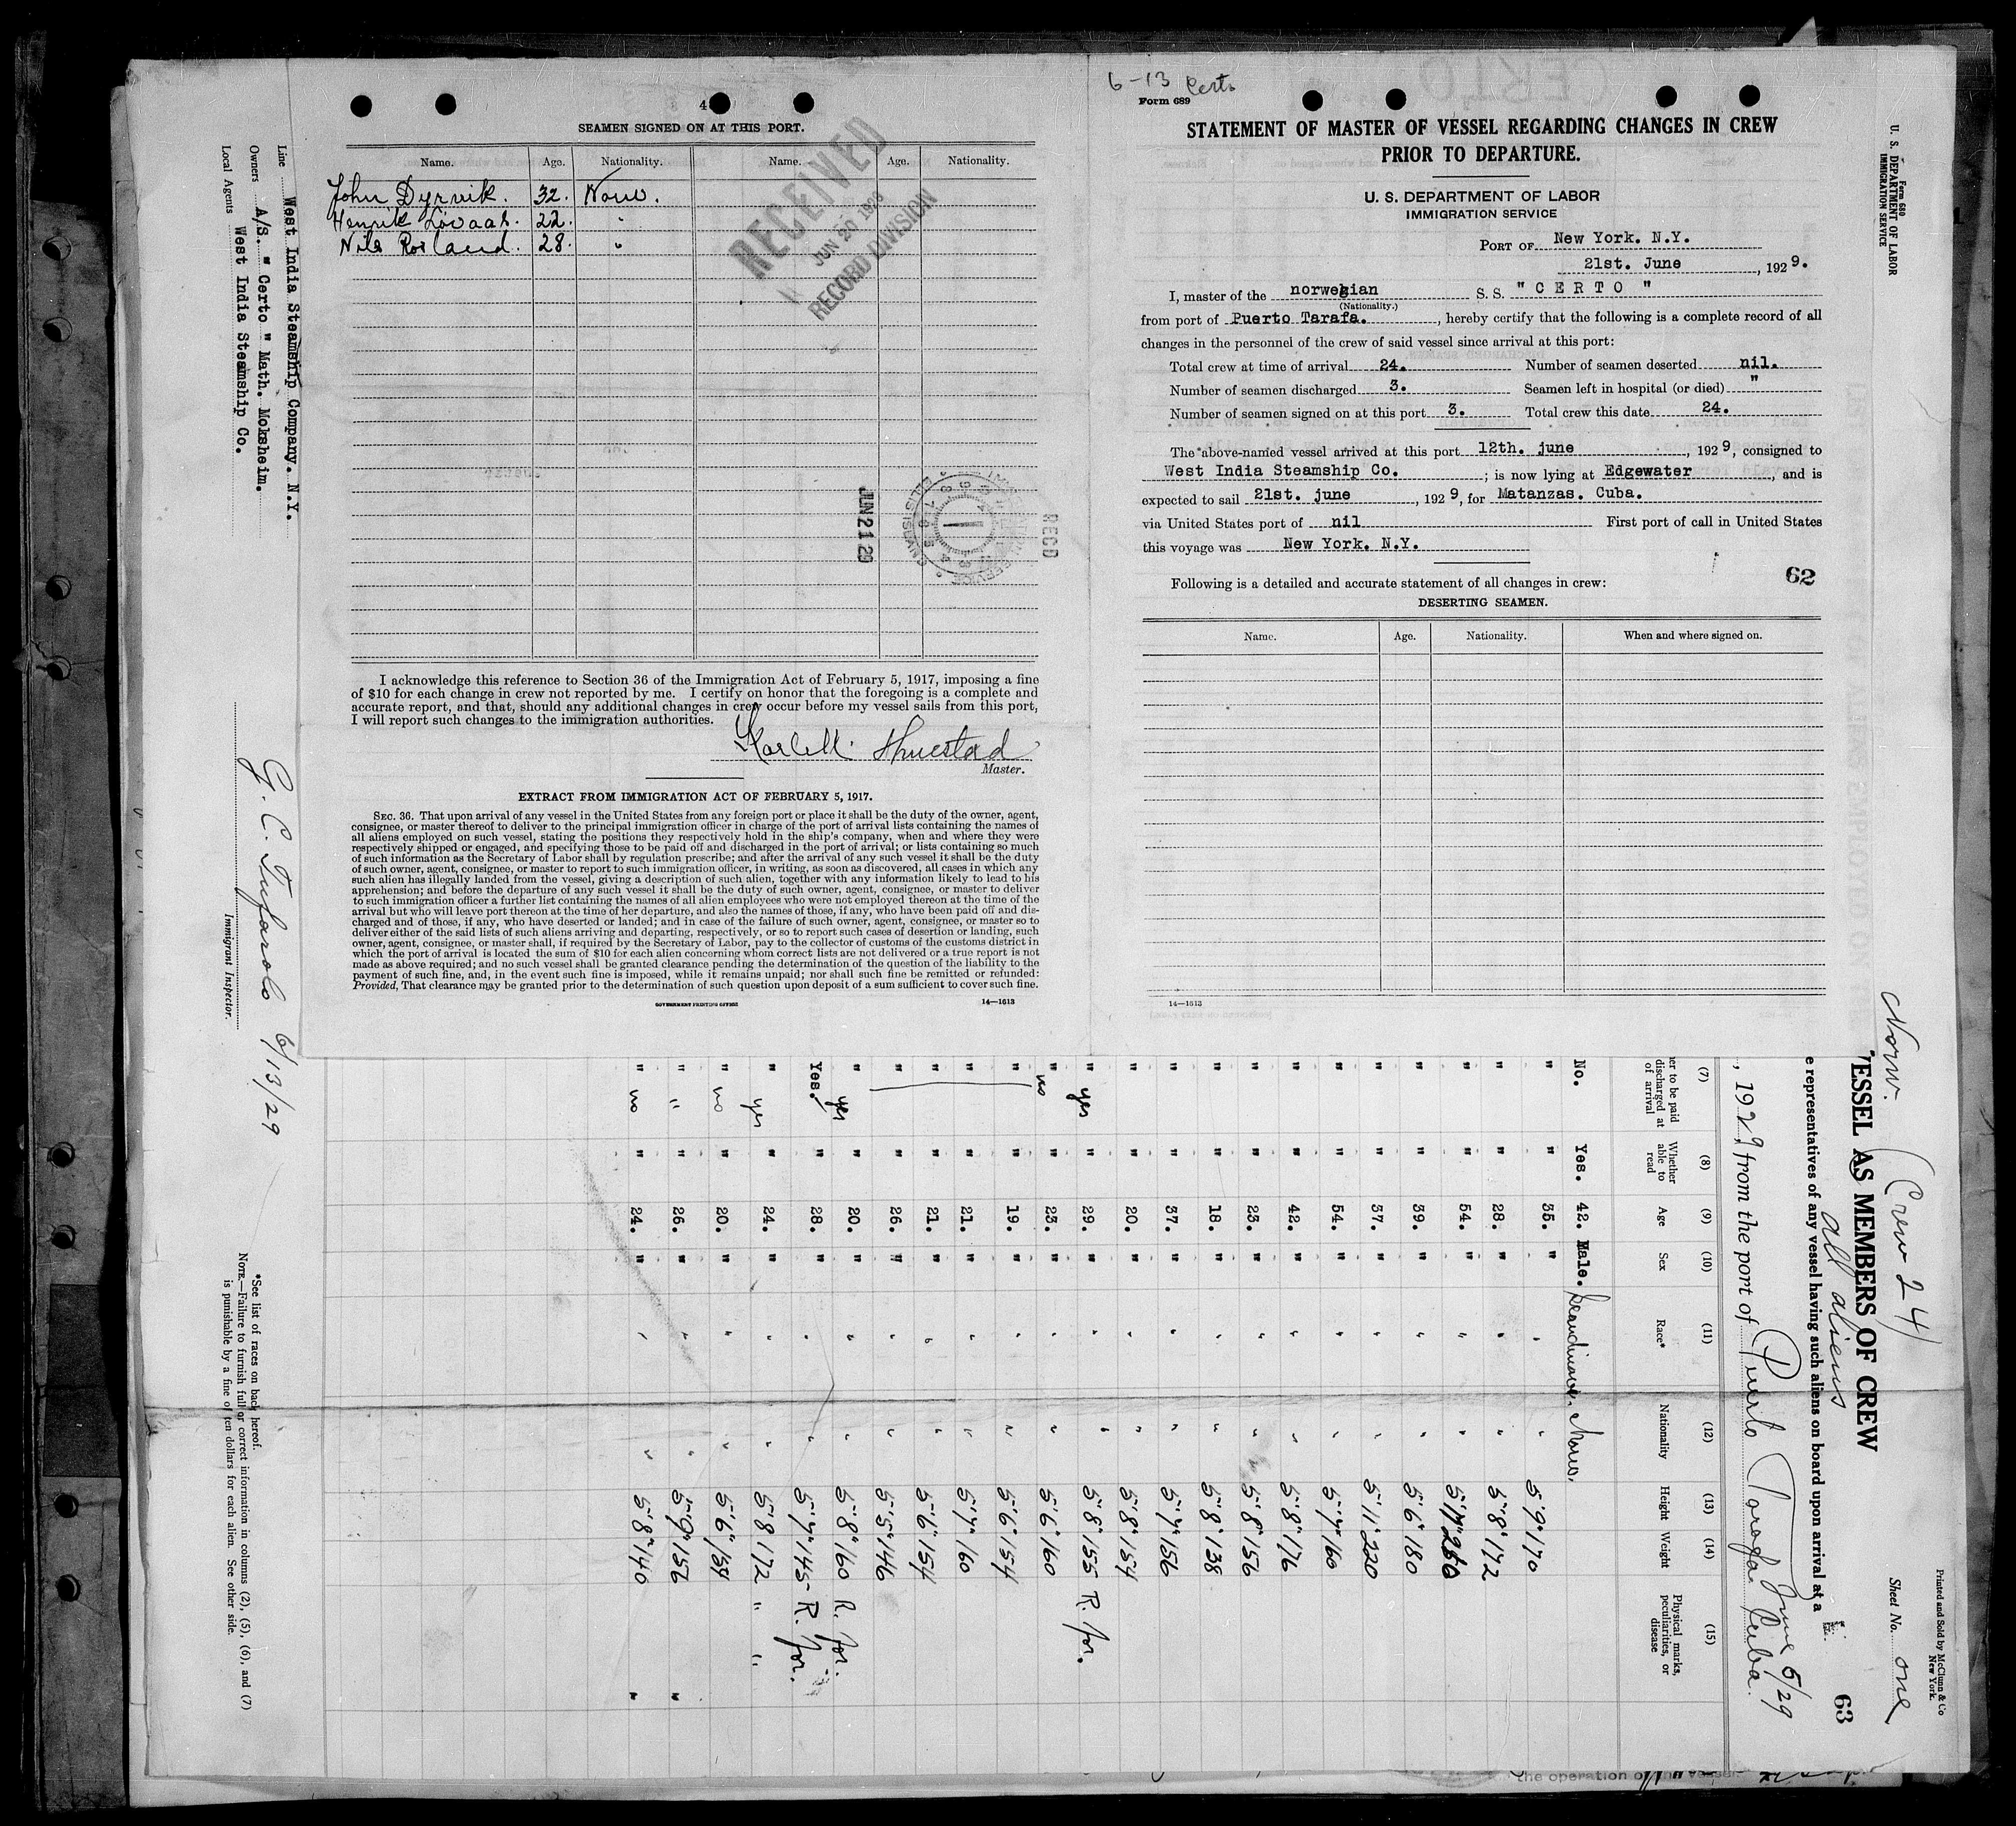 6-13 Certo
Form 689
STATEMENT OF MASTER OF VESSEL REGARDING CHANGES IN CREW
PRIOR TO DEPARTURE.
U. S. DEPARTMENT OF LABOR
IMMIGRATION SERVICE
PORT OF New York. N.Y.
21st. June, 1929.
I, master of the norwegian S. S. " C E R T O "
(Nationality.)
from port of Puerto Tarafa., hereby certify that the following is a complete record of all
changes in the personnel of the crew of said vessel since arrival at this port:
Total crew at time of arrival 24. Number of seamen deserted nil.
Number of seamen discharged 3. Seamen left in hospital (or died) "
Number of seamen signed on at this port 3. Total crew this date 24.
The above-named vessel arrived at this port 12th. june, 1929, consigned to
West India Steamship Co.; is now lying at Edgewater, and is
expected to sail 21st. june, 1929, for Matanzas. Cuba.
via United States port of nil First port of call in United States
this voyage was New York. N.Y.
62
Following is a detailed and accurate statement of all changes in crew:
DESERTING SEAMEN.
Name. Age. Nationality. When and where signed on.
14—1613
4
SEAMEN SIGNED ON AT THIS PORT.
Name. Age. Nationality. Name. Age. Nationality.
John Dyrvik. 32. Norw.
Henrik Lovaas. 22. "
Nils Rorland. 28. "
RECEIVED
JUN 20 19
RECORD DIVISION
JUN 21 29
RECD
I acknowledge this reference to Section 36 of the Immigration Act of February 5, 1917, imposing a fine
of $10 for each change in crew not reported by me. I certify on honor that the foregoing is a complete and
accurate report, and that, should any additional changes in crew occur before my vessel sails from this port,
I will report such changes to the immigration authorities.
Master.
EXTRACT FROM IMMIGRATION ACT OF FEBRUARY 5, 1917.
SEC. 36. That upon arrival of any vessel in the United States from any foreign port or place it shall be the duty of the owner, agent,
consignee, or master thereof to deliver to the principal immigration officer in charge of the port of arrival lists containing the names of
all aliens employed on such vessel, stating the positions they respectively hold in the ship's company, when and where they were
respectively shipped or engaged, and specifying those to be paid off and discharged in the port of arrival; or lists containing so much
of such information as the Secretary of Labor shall by regulation prescribe; and after the arrival of any such vessel it shall be the duty
of such owner, agent, consignee, or master to report to such immigration officer, in writing, as soon as discovered, all cases in which any
such alien has illegally landed from the vessel, giving a description of such alien, together with any information likely to lead to his
apprehension; and before the departure of any such vessel it shall be the duty of such owner, agent, consignee, or master to deliver
to such immigration officer a further list containing the names of all alien employees who were not employed thereon at the time of the
arrival but who will leave port thereon at the time of her departure, and also the names of those, if any, who have been paid off and dis-
charged and of those, if any, who have deserted or landed; and in case of the failure of such owner, agent, consignee, or master so to
deliver either of the said lists of such aliens arriving and departing, respectively, or so to report such cases of desertion or landing, such
owner, agent, consignee, or master shall, if required by the Secretary of Labor, pay to the collector of customs of the customs district in
which the port of arrival is located the sum of $10 for each alien concerning whom correct lists are not delivered or a true report is not
made as above required; and no such vessel shall be granted clearance pending the determination of the question of the liability to the
payment of such fine, and, in the event such fine is imposed, while it remains unpaid; nor shall such fine be remitted or refunded:
Provided, That clearance may be granted prior to the determination of such question upon deposit of a sum sufficient to cover such fine.
GOVERNMENT PRINTING OFFICE 14—1613
Form 680
U. S. DEPARTMENT OF LABOR
IMMIGRATION SERVICE
Printed and Sold by McClunn & Co
New York.
Sheet No. one
Norw. (Crew 24)
ESSEL AS MEMBERS OF CREW
63
all aliens
e representatives of any vessel having such aliens on board upon arrival at a
June 5/29
, 1929, from the port of Puerto Tarafa Cuba.
(7) (8) (9) (10) (11) (12) (13) (14) (15)
er to be paid discharged at of arrival
Whether able to read
Age
Sex
Race*
Nationality
Height
Weight
Physical marks, peculiarities, or disease
No. Yes. 42. Male. Scandinav. Norw.
" " 35. " " " 5'9" 170
" " 28. " " " 5'8" 172
" " 54. " " " 260
" " 39. " " " 5'6" 180
" " 37. " " " 5'11" 220
" " 54. " " " 5'7" 160
" " 42. " " " 5'8" 176
" " 23. " " " 5'8" 156
" " 18. " " " 5'8" 138
" " 37. " " " 5'7" 156
" " 20. " " " 5'8" 154
" yes " 29. " " " 5'8" 155 R. for.
" no " 23. " " " 5'6" 160
" " 19. " " " 5'6" 154
" " 21. " " " 5'7" 160
" " 21. " " " 5'6" 154
" " 26. " " " 5'5" 146
" yes " 20. " " " 5'8" 160 R. for.
Yes. " 28. " " " 5'7" 145 R. for.
" yes " 24. " " " 5'8 172 " "
" no " 20. " " " 5'6"
" " " 26. " " " 5'9" 156 "
" no " 24. " " " 5'8" 140 "
Line West India Steamship Company. N.Y.
Owners A/S. " Certo " Math. Moksheim.
Local Agents West India Steamship Co.
G. C. Tufarolo 6/13/29
Immigrant Inspector.
*See list of races on back hereof.
NOTE.—Failure to furnish full or correct information in columns (2), (5), (6), and (7)
is punishable by a fine of ten dollars for each alien. See other side.
the operation of the vessel